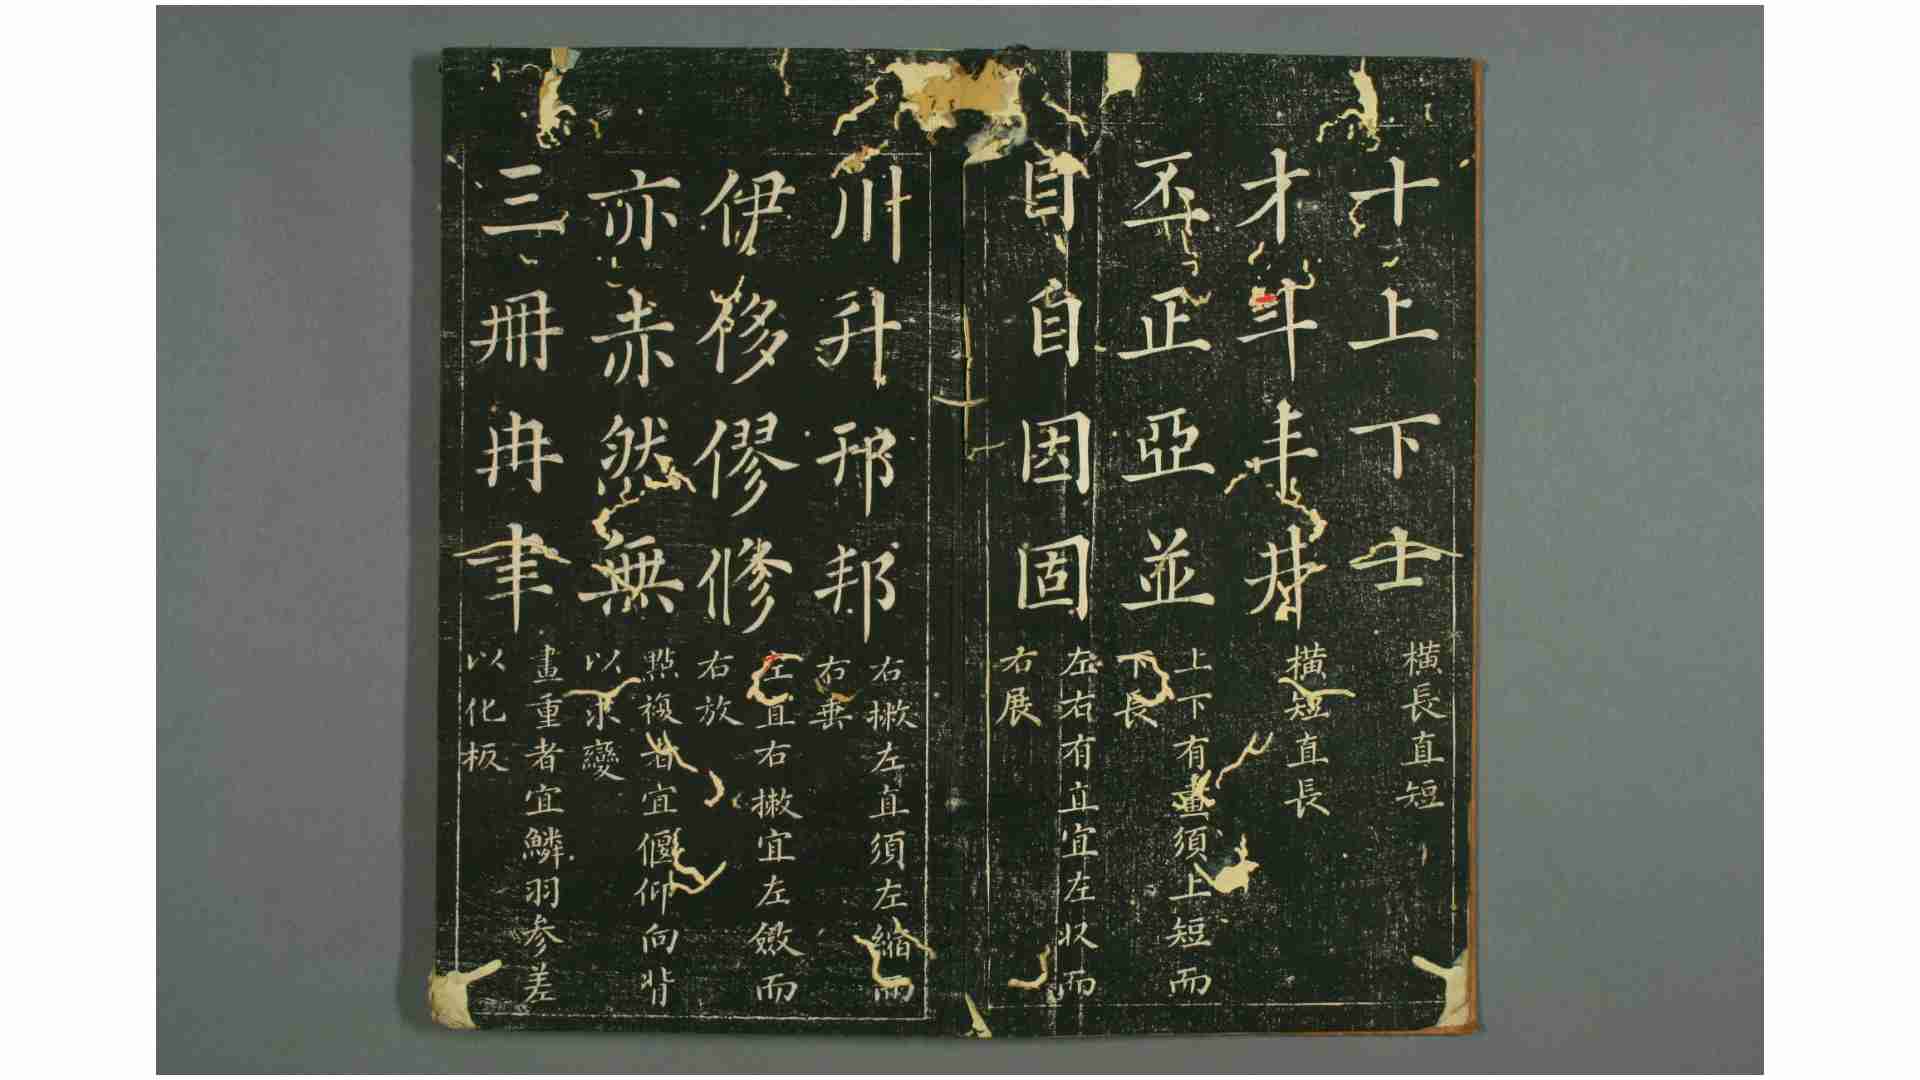 十上下士
横長直短
才斗丰井
横短直長
丕正亞並
上下有畫須上短而
下長
目自因固
左右有直宜左收而
右展
川升邢邦
右撇左直須左縮而
右垂
伊移僇修
左直右撇宜左斂而
右放
亦赤然無
點複者宜偃仰向背
以求變
三冊冉聿
畫重者宜鱗羽参差
以化板